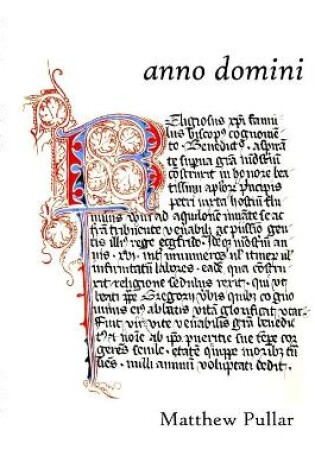 anno domini
Religiosus xpi famu
lus biscop' cognomē
to Benedict' aspirā
te supna grā
construxit in honore bea
tissimi aplor' principis
petri iuxta hostiū flu
minis wiri ad aquilonē iuuāte se ac
trā tribuente venabili ac piissio gen
tis illi' rege ecgfrido. an
nis . xvi . int' innumeros ul' itiner ul'
infirmitatū labores . eadē qua cōstru
xit religione sedulus rexit. Qui ut
beati ppe Gregorii ubis quib; cogno
minis ei' ablatis vitā glorificat vtar.
Fuit vir vite venabilis grā benedic
t' noīe ab ipo pueritie sue tēpre cor
gerens senile . etatē quippe moribz
nulli animū voluptati dedit.
Matthew Pullar